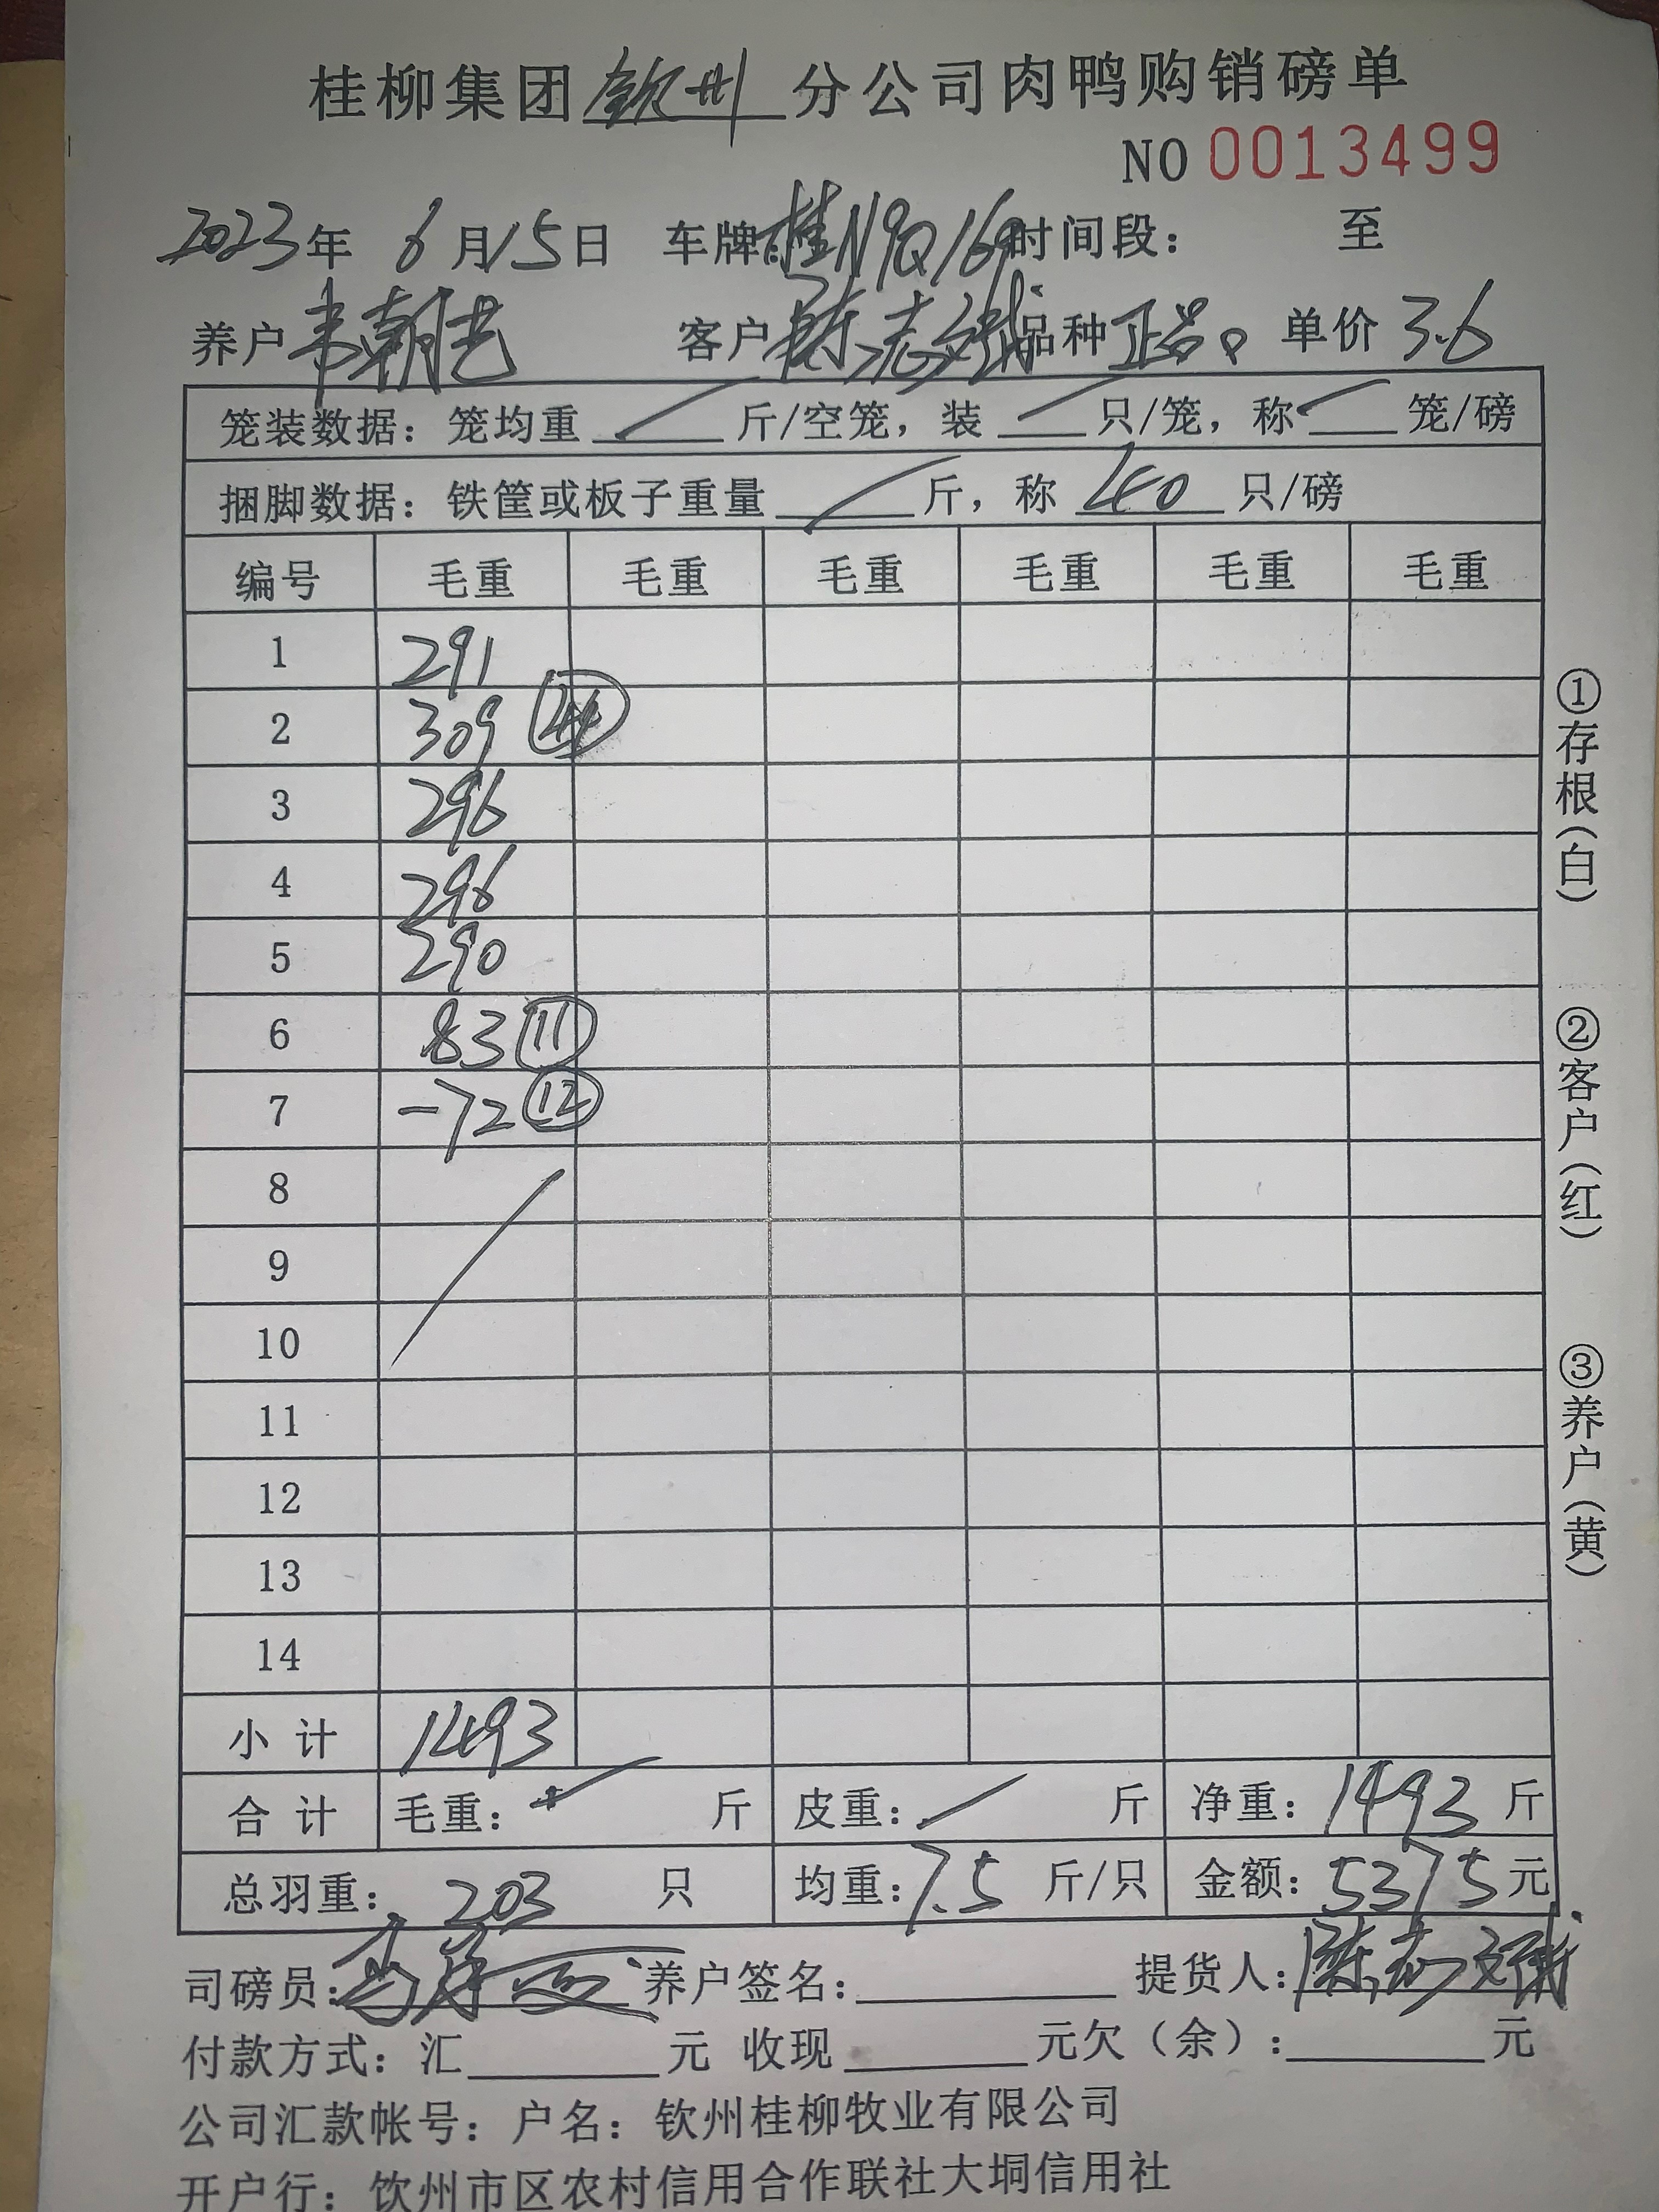 桂柳集团钦州分公司肉鸭购销磅单
NO 0013499
2023年 6月15日 车牌:桂N9Q169时间段： 至
养户韦朝艺 客户陈志斌品种正品。 单价3.6
笼装数据：笼均重 斤/空笼，装 只/笼，称 笼/磅
捆脚数据：铁筐或板子重量 斤，称 40 只/磅
编号 毛重 毛重 毛重 毛重 毛重 毛重
1 291
2 309 44
3 296
4 296
5 290
6 83 11
7 -72 12
8
9
10
11
12
13
14
小 计 1493
合 计 毛重： 斤 皮重： 斤 净重：1493斤
总羽重： 203 只 均重：7.5 斤/只 金额：5375元
司磅员: 养户签名： 提货人：陈志斌
付款方式：汇 元 收现 元欠（余）： 元
公司汇款帐号：户名：钦州桂柳牧业有限公司
开户行：钦州市区农村信用合作联社大垌信用社
①存根(白)
②客户(红)
③养户(黄)